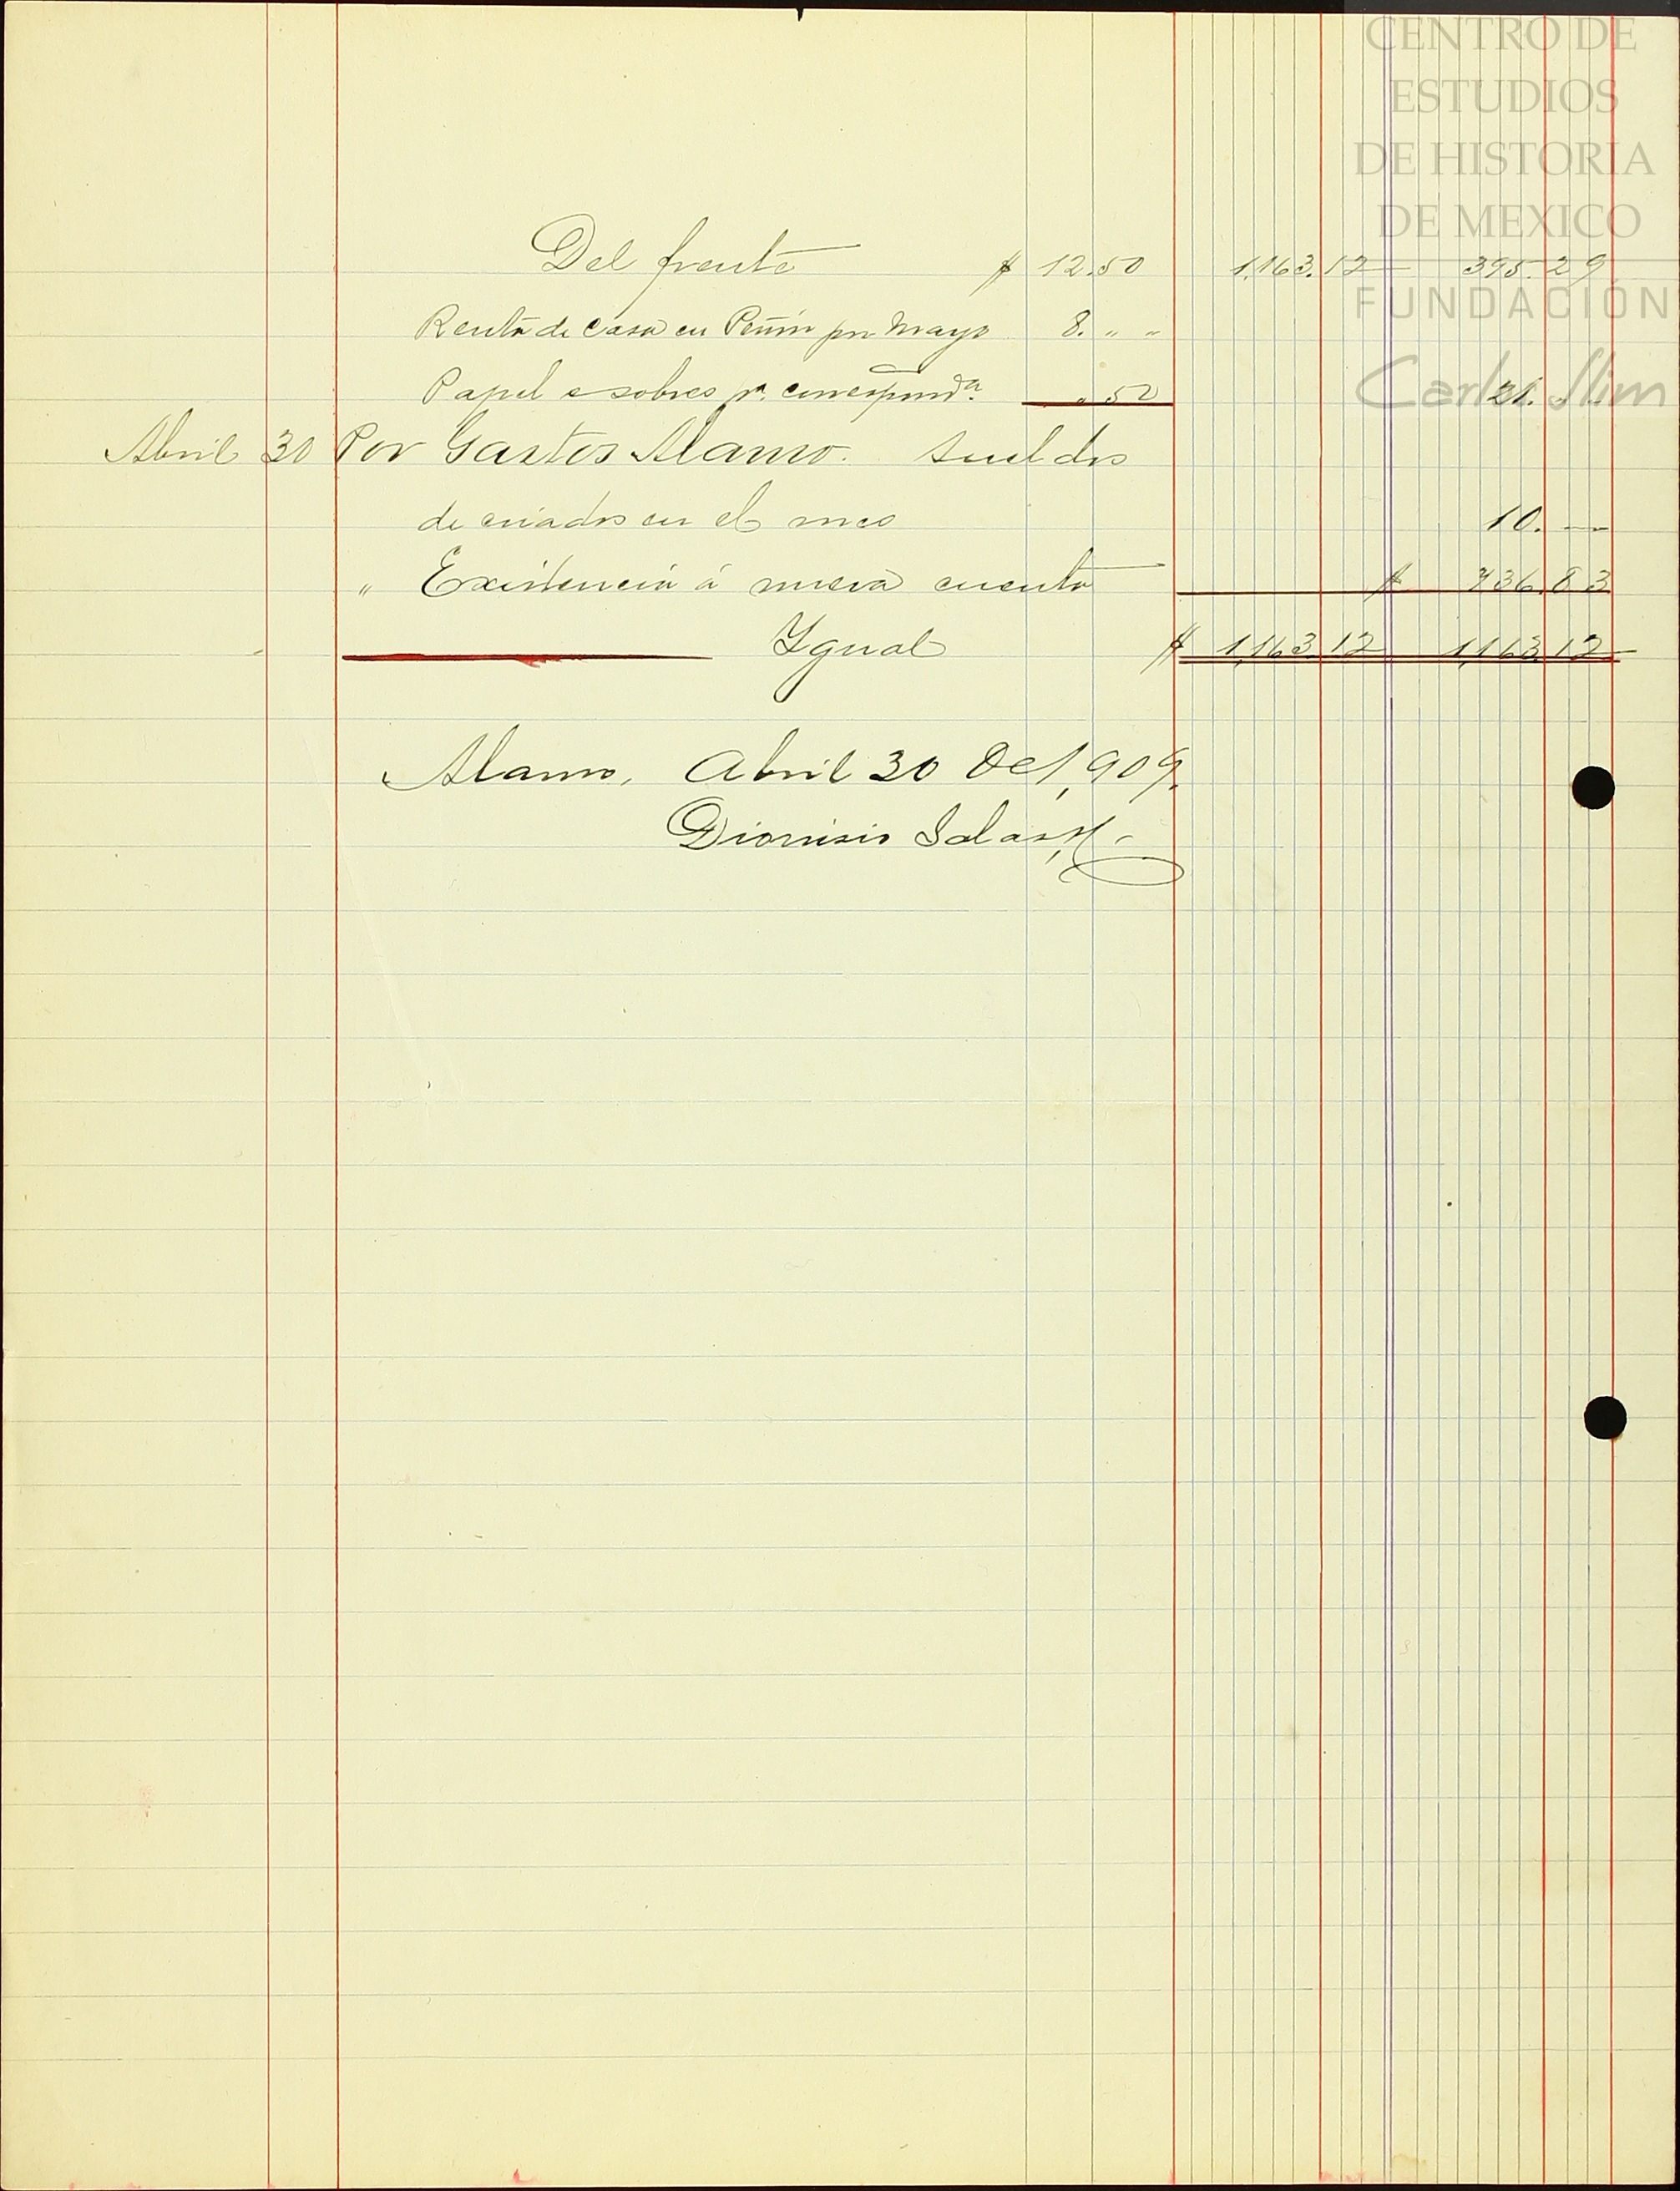 CENTRO DE
ESTUDIOS
DE HISTORIA
DE MEXICO
FUNDACIÓN
Carlos Slim
Del frente $ 12.50 1,163.12 395.29
Renta de casa en Peñón por Mayo 8. " "
Papel e sobres pa. correspondª. " 50 21. " "
Abril 30 Por Gastos Alamo. Sueldos
de criados en el mes 10. —
" Existencia á nueva cuenta $ 736.83
Ygual $ 1,163.12 1,163.12
Alamo, Abril 30 de 1,909.
Dionisio Salas, H.